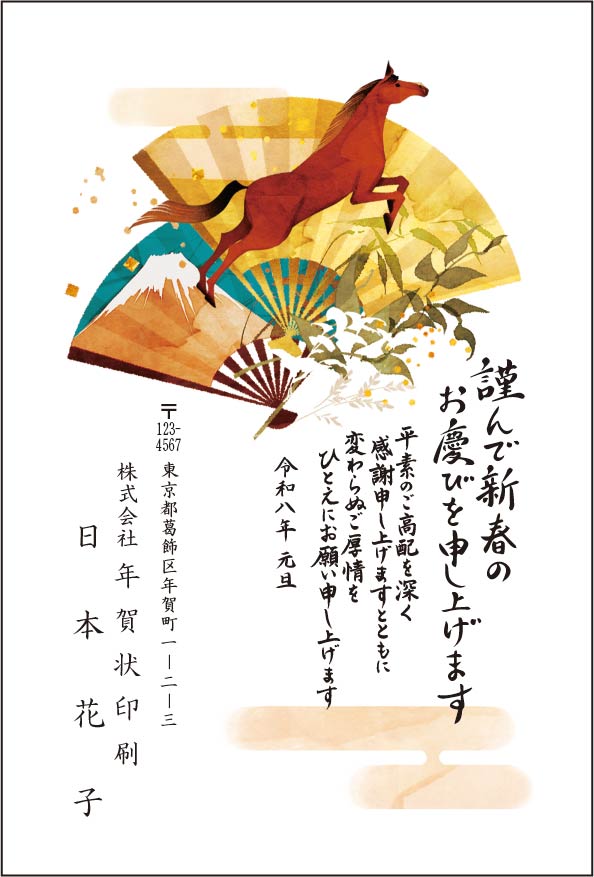 謹んで新春の
お慶びを申し上げます
平素のご高配を深く
感謝申し上げますとともに
変わらぬご厚情を
ひとえにお願い申し上げます
令和八年 元旦
〒123-4567
東京都葛飾区年賀町一ー二ー三
株式会社年賀状印刷
日本花子